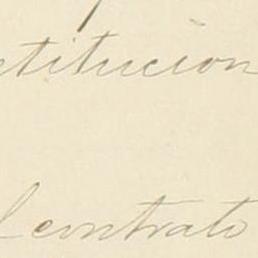 etitucion
l contrato